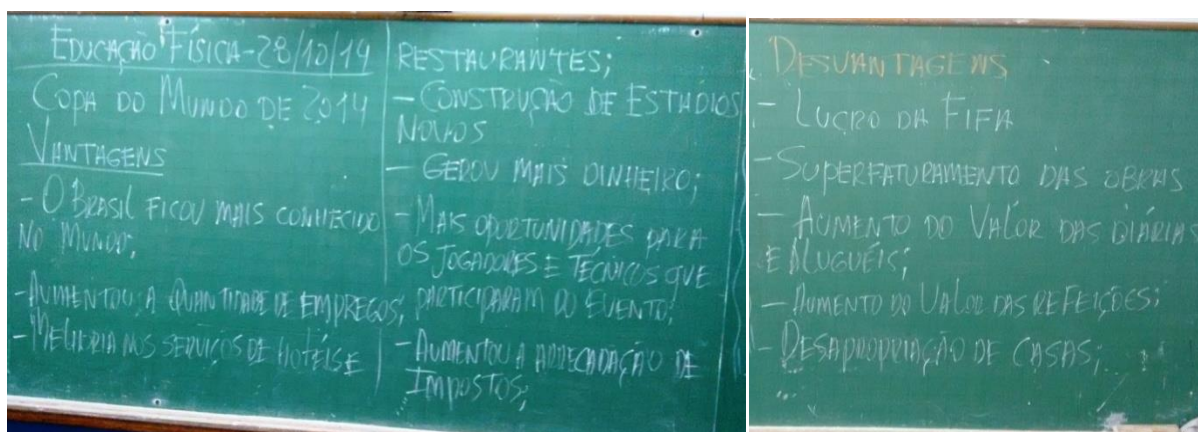 EDUCAÇÃO FÍSICA - 28/10/14
COPA DO MUNDO DE 2014
VANTAGENS
- O BRASIL FICOU MAIS CONHECIDO
NO MUNDO;
- AUMENTOU A QUANTIDADE DE EMPREGOS;
- MELHORIA NOS SERVIÇOS DE HOTÉIS E
RESTAURANTES;
- CONSTRUÇÃO DE ESTÁDIOS
NOVOS
- GEROU MAIS DINHEIRO;
- MAIS OPORTUNIDADES PARA
OS JOGADORES E TÉCNICOS QUE
PARTICIPARAM DO EVENTO;
- AUMENTOU A ARRECADAÇÃO DE
IMPOSTOS;
...
DESVANTAGENS
- LUCRO DA FIFA
- SUPERFATURAMENTO DAS OBRAS
- AUMENTO DO VALOR DAS DIÁRIAS
E ALUGUÉIS;
- AUMENTO DO VALOR DAS REFEIÇÕES;
- DESAPROPRIAÇÃO DE CASAS;
...